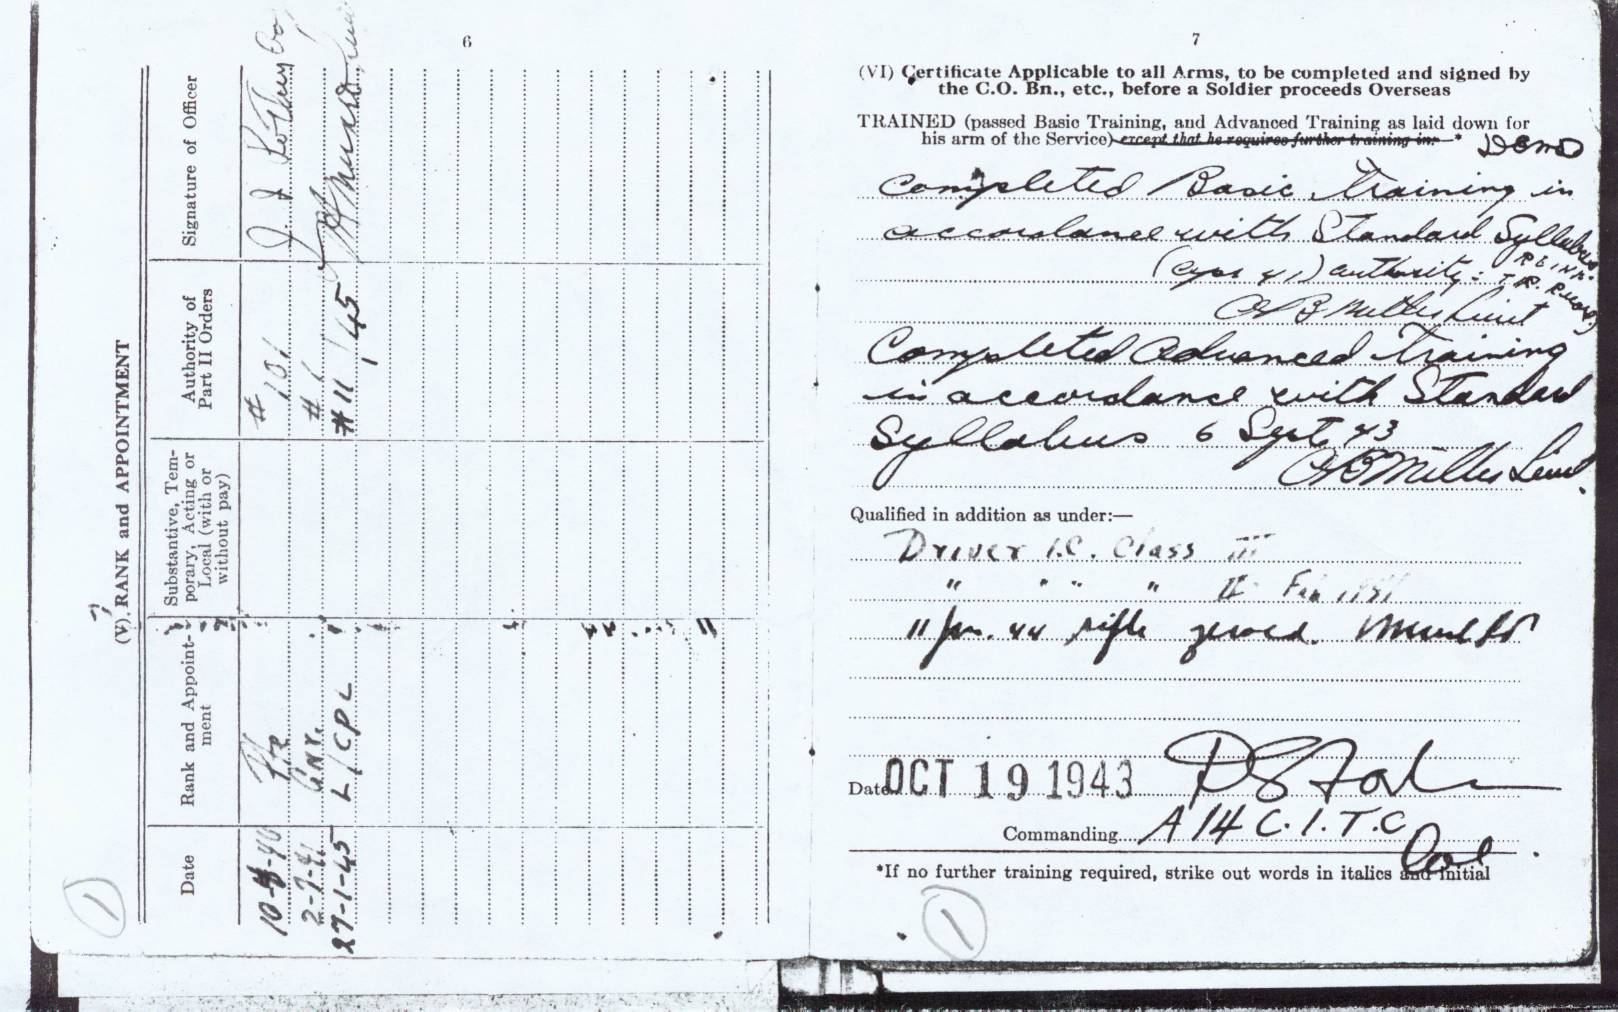 6
(V) RANK and APPOINTMENT
Date
Rank and Appoint-
ment
Substantive, Tem-
porary, Acting or
Local (with or
without pay)
Authority of
Part II Orders
Signature of Officer
10-8-40 Pte # 101
2-7-41 GNR. # 1
27-1-45 L/CPL #11/45
1
7
(VI) Certificate Applicable to all Arms, to be completed and signed by
the C.O. Bn., etc., before a Soldier proceeds Overseas
TRAINED (passed Basic Training, and Advanced Training as laid down for
his arm of the Service) except that he requires further training in:—*
Completed Basic Training in
accordance with Standard Syllabus
authority:
Miller Lieut
Completed Advanced Training
in accordance with Standard
Syllabus 6 Sept. 43
Miller Lieut.
Qualified in addition as under:—
Driver I.C. Class III
" " " " II
11 Jan. 44 rifle zeroed.
Date OCT 19 1943
Commanding A14 C.I.T.C
Col
*If no further training required, strike out words in italics and initial
1